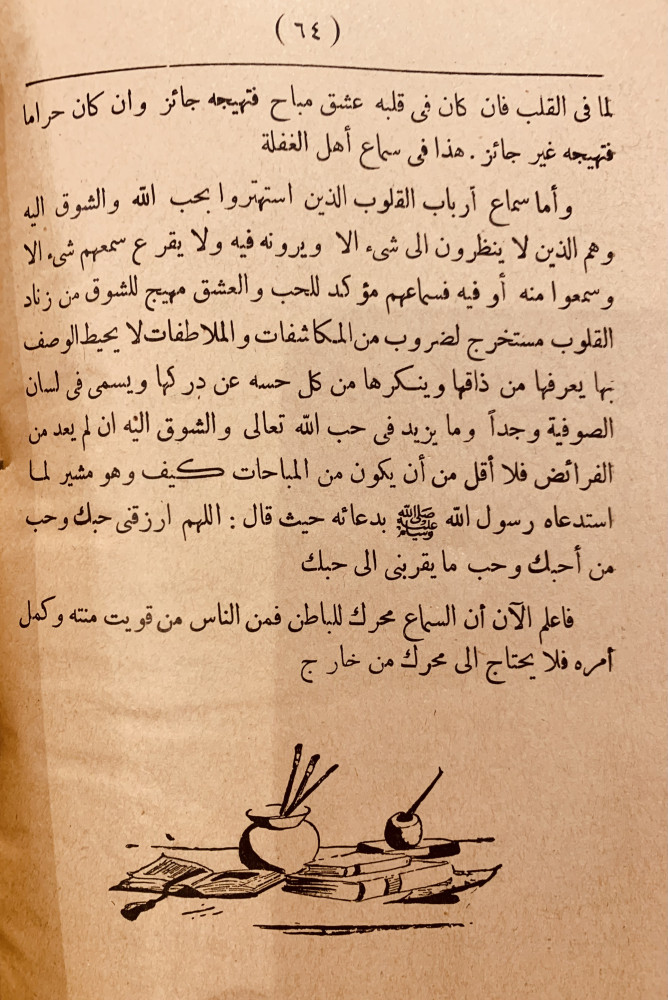 ( ٦٤ )
لما فى القلب فان كان فى قلبه عشق مباح فتهيجه جائز وان كان حراما
فتهيجه غير جائز . هذا فى سماع أهل الغفلة
وأما سماع أرباب القلوب الذين استهتروا بحب الله والشوق اليه
وهم الذين لا ينظرون الى شىء الا ويرونه فيه ولا يقرع سمعهم شىء الا
وسمعوا منه أو فيه فسماعهم مؤكد للحب والعشق مهيج للشوق من زناد
القلوب مستخرج لضروب من المكاشفات والملاطفات لا يحيط الوصف
بها يعرفها من ذاقها وينكرها من كل حسه عن دركها ويسمى فى لسان
الصوفية وجداً وما يزيد فى حب الله تعالى والشوق اليه ان لم يعد من
الفرائض فلا أقل من أن يكون من المباحات كيف وهو مشير لما
استدعاه رسول الله ﷺ بدعائه حيث قال : اللهم ارزقنى حبك وحب
من أحبك وحب ما يقربنى الى حبك
فاعلم الآن أن السماع محرك للباطن فمن الناس من قويت منته وكمل
أمره فلا يحتاج الى محرك من خارج